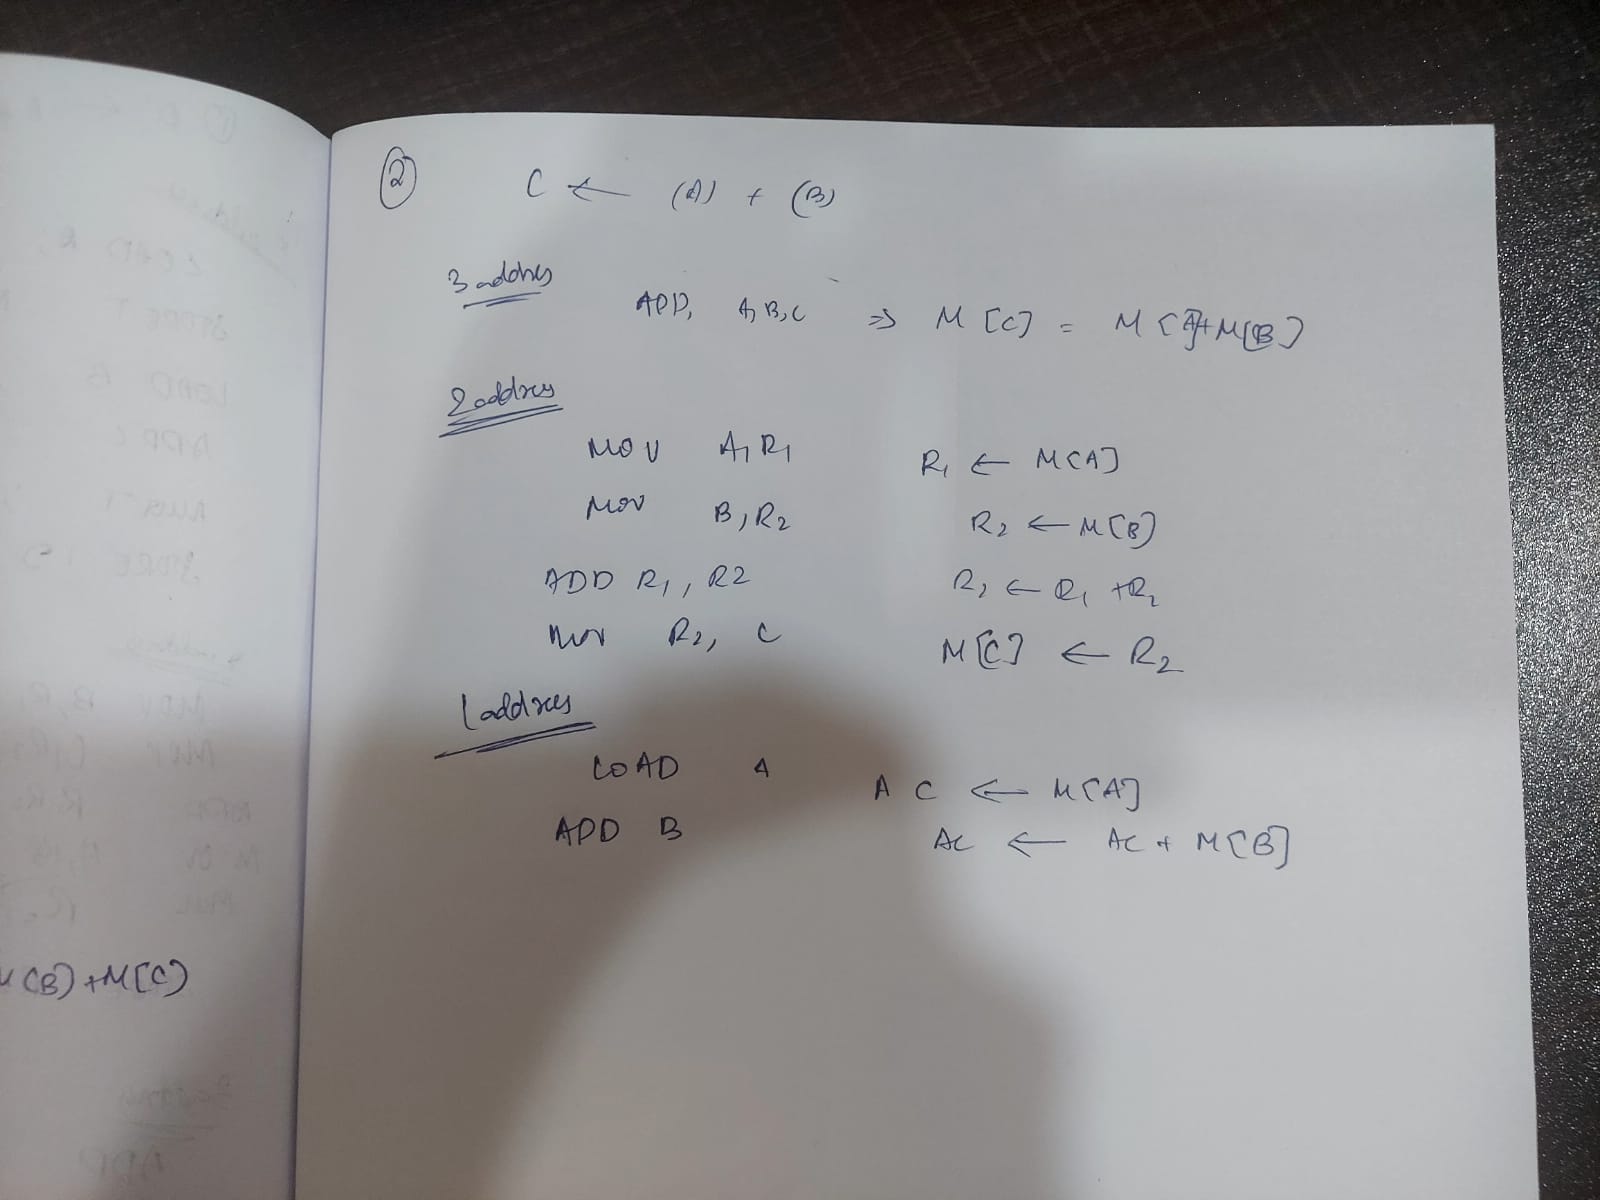 ② C ← (A) + (B)
3 addres
ADD, A, B, C ⇒ M[C] = M[A]+M[B]
2 address
MOV A, R1 R1 ← M[A]
MOV B, R2 R2 ← M[B]
ADD R1, R2 R2 ← R1 + R2
MOV R2, C M[C] ← R2
1 address
LOAD A AC ← M[A]
ADD B AC ← AC + M[B]
M[B] + M[C]